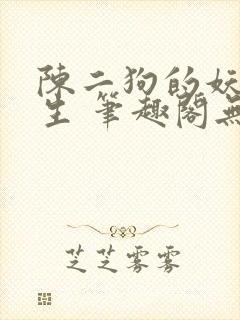 陳二狗的妖
生 筆趣閣無
芝芝雾雾